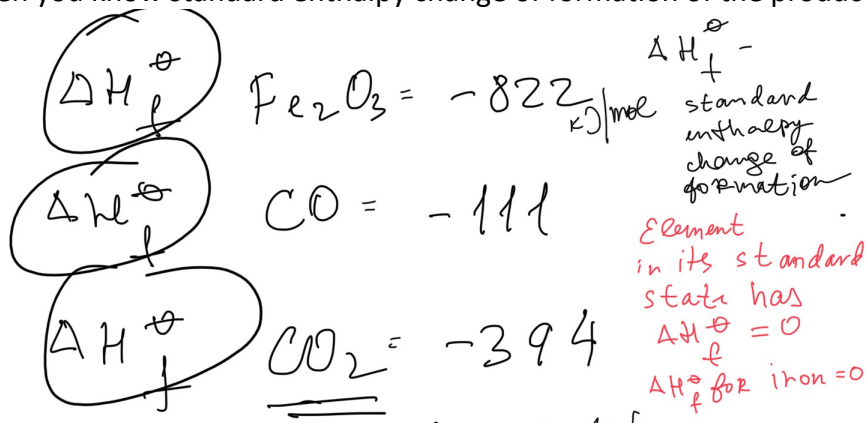 you know standard enthalpy change of formation of the produc
ΔH⦵f Fe₂O₃ = -822 kJ/mol
ΔH⦵f CO = -111
ΔH⦵f CO₂ = -394
ΔH⦵f -
standard
enthalpy
change of
formation
Element
in its standard
state has
ΔH⦵f = 0
ΔH⦵f for iron = 0